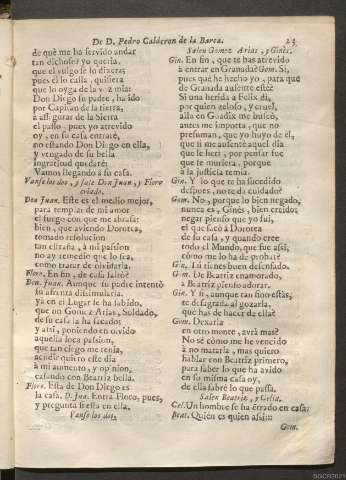 De D. Pedro Calderon de la Barca.
23
de què me ha servido andar
tan dichoso? yo queria,
que el vulgo se lo dixera;
pues el lo calla, quisiera
que lo oyga de la voz mia:
Don Diego su padre, ha ido
por Capitan de la sierra,
à assegurar de la Sierra
el passo, pues yo atrevido
oy, en su casa entraré,
no estando Don Diego en ella,
y vengado de su bella
ingratitud quedarè.
Vamos llegando à su casa.
Vanse los dos, y sale Don Juan, y Floro
criado.
Don Juan. Este es el medio mejor,
para templar de mi amor
el fuego con que me abraso
bien, que aviendo Dorotea,
tomado resolucion
tan estraña, à mi passion
no ay remedio que lo sea,
como tratar de olvidarla.
Floro. En fin, de casa faltò?
Don. Juan. Aunque su padre intentò
su afrenta dissimularla,
ya en el Lugar se ha sabido,
que un Gomez Arias, Soldado,
de su casa la ha sacado
y assi, poniendo en olvido
aquella loca passion,
que tan ciego me tenia,
acudir quiero este dia
à mi aumento, y opinion,
casando con Beatriz bella.
Floro. Esta de Don Diego es
la casa. D. Jua. Entra Floro, pues,
y pregunta si està en ella.
Vanse los dos.
Salen Gomez Arias, y Ginès.
Gin. En fin, que te has atrevido
à entrar en Granada? Gom. Si,
pues què he hecho yo, para que
de Granada ausente estè?
Si una herida à Felix di,
por quien zeloso, y cruel,
allà en Guadix me buscò,
antes me importa, que no
presuman, que yo huyo de èl,
que si me ausentè aquel dia
que le herì, por pensar fue
que te muriera, porque
à la justicia temia.
Gin. Y lo que te ha sucedido
despues, no te da cuidado?
Gom. No, porque lo bien negado,
nunca es, Ginès, bien creido;
negar pienso que yo fui,
el que sacò à Dorotea
de su casa, y quando cree
todo el Mundo, que fue assi,
còmo me lo ha de probar?
Gin. Assi es buen desenfado.
Gom. De Beatriz enamorado,
à Beatriz pienso adorar.
Gin. Y si, aunque tan fino estàs,
te desagrada al gozarla,
que has de hacer de ella?
Gom. Dexarla
en otro monte, avrà mas?
No sè còmo me he vencido
à no matarla, mas quiero
hablar con Beatriz primero,
para saber lo que ha avido
en su misma casa oy,
de ella sabrè lo que passa.
Salen Beatriz, y Celia.
Cel. Un hombre se ha entrado en casa:
Beat. Quièn es quien assi:::
Gom.